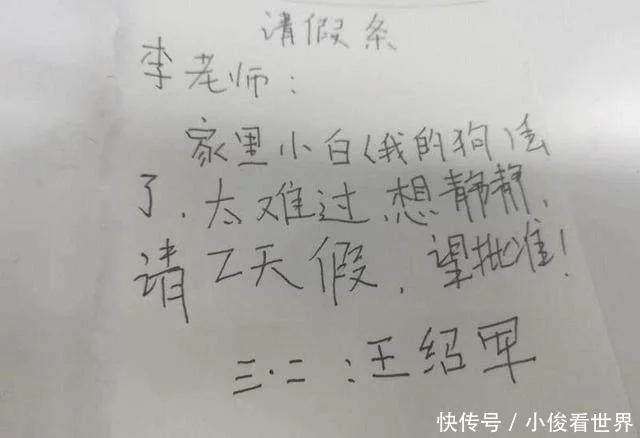 请假条
李老师：
家里小白(我的狗)丢
了,太难过,想静静,
请2天假,望批准!
三·二:王绍军
快传号/小俊看世界